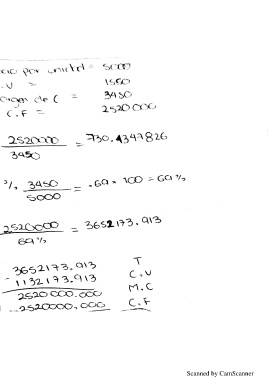 cio por unidad = 5000
.V = 1550
argen de C = 3450
C.F = 2520000
2520000 = 730.4347826
3450
% 3450 = .69 × 100 = 69%
5000
2520000 = 3652173.913
69%
3652173.913 T
- 1132173.913 C.V
2520000.000 M.C
- 2520000,000 C.F
Scanned by CamScanner